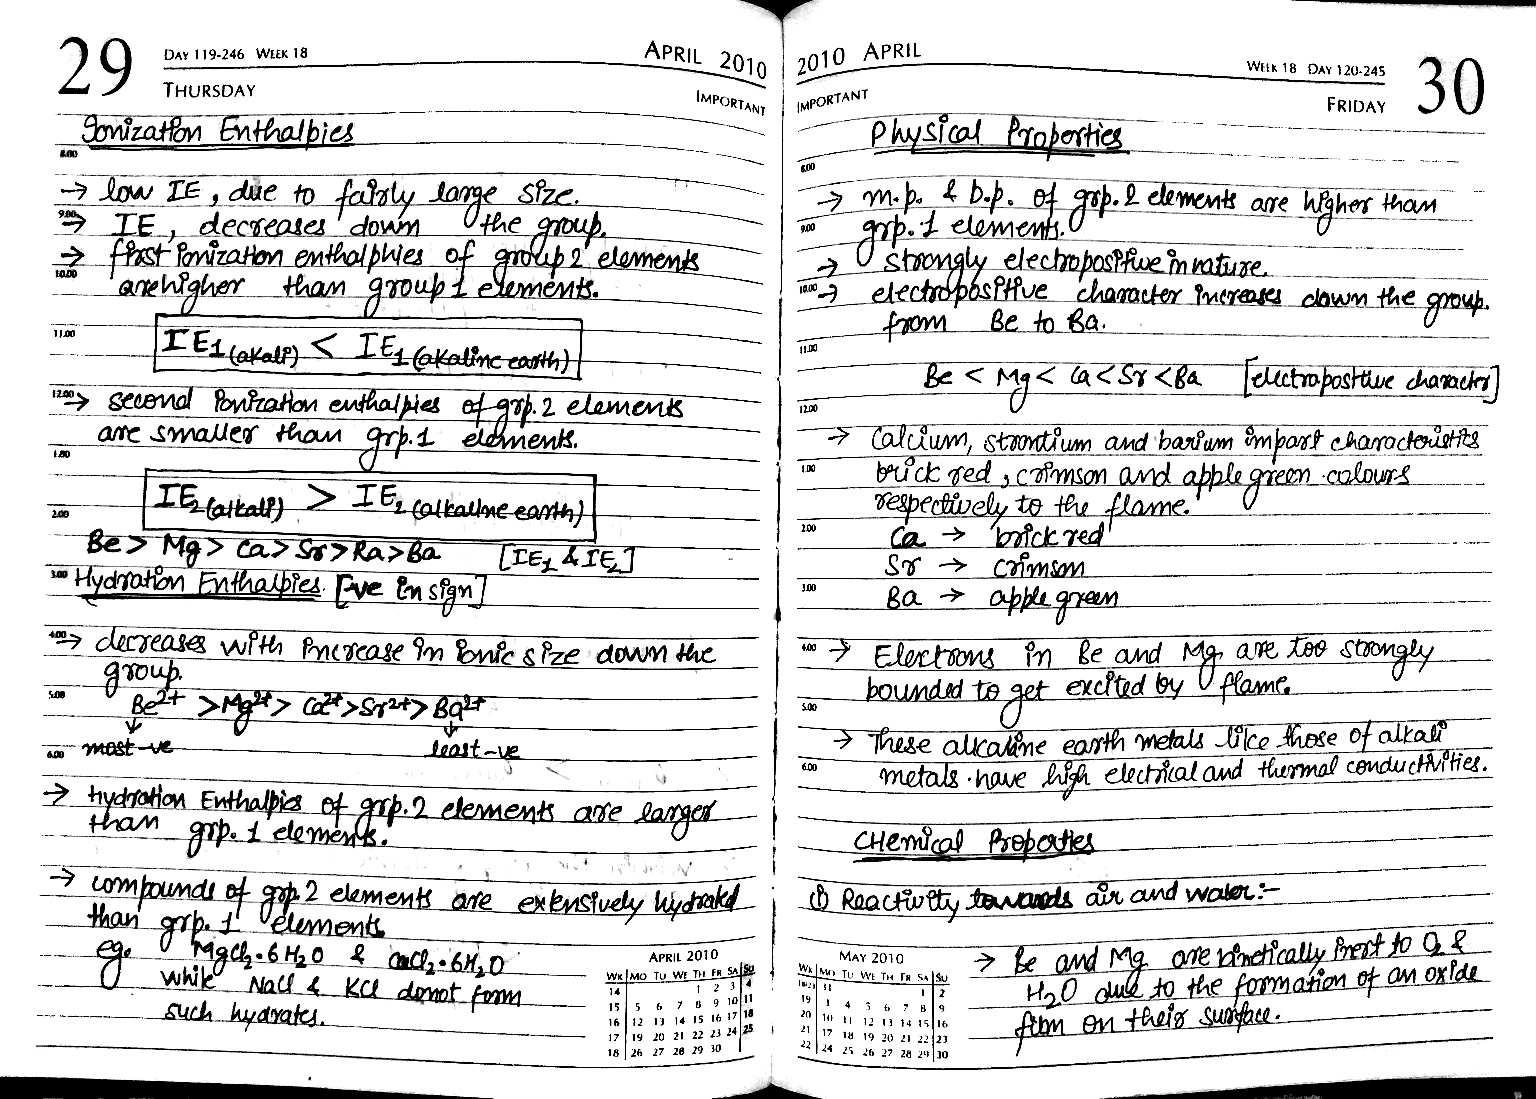 29
DAY 119-246 WEEK 18
APRIL 2010
THURSDAY
IMPORTANT
Ionization Enthalpies
8.00
→ low IE, due to fairly large size.
9.00
→ IE, decreases down the group.
→ first ionization enthalphies of group 2 elements
10.00
are higher than group 1 elements.
11.00
IE1 (alkali) < IE1 (alkaline earth)
12.00
→ second ionization enthalpies of grp. 2 elements
are smaller than grp. 1 elements.
1.00
IE2 (alkali) > IE2 (alkaline earth)
2.00
Be > Mg > Ca > Sr > Ra > Ba [IE1 & IE2]
3.00
Hydration Enthalpies [-ve in sign]
4.00
→ decreases with increase in ionic size down the
group.
5.00
Be2+ > Mg2+ > Ca2+ > Sr2+ > Ba2+
↓ ↓
6.00
most -ve least -ve
→ Hydration Enthalpies of grp. 2 elements are larger
than grp. 1 elements.
→ compounds of grp 2 elements are extensively hydrated
than grp. 1 elements
eg. MgCl2.6H2O & CaCl2.6H2O
while NaCl & KCl donot form
such hydrates.
APRIL 2010
WK MO TU WE TH FR SA SU
14 1 2 3 4
15 5 6 7 8 9 10 11
16 12 13 14 15 16 17 18
17 19 20 21 22 23 24 25
18 26 27 28 29 30
2010 APRIL
WEEK 18 DAY 120-245
30
IMPORTANT
FRIDAY
Physical Properties
8.00
→ m.p. & b.p. of grp. 2 elements are higher than
9.00
grp. 1 elements.
→ strongly electropositive in nature.
10.00
→ electropositive character increases down the group.
from Be to Ba.
11.00
Be < Mg < Ca < Sr < Ba [electropositive character]
12.00
→ Calcium, strontium and barium impart characteristics
1.00
brick red, crimson and apple green colours
respectively to the flame.
2.00
Ca → brick red
Sr → crimson
3.00
Ba → apple green
4.00
→ Electrons in Be and Mg are too strongly
bounded to get excited by flame.
5.00
→ These alkaline earth metals like those of alkali
6.00
metals have high electrical and thermal conductivities.
CHemical Properties
(i) Reactivity towards air and water:-
→ Be and Mg are kinetically inert to O2 &
H2O due to the formation of an oxide
film on their surface.
MAY 2010
WK MO TU WE TH FR SA SU
18/23 31 1 2
19 3 4 5 6 7 8 9
20 10 11 12 13 14 15 16
21 17 18 19 20 21 22 23
22 24 25 26 27 28 29 30